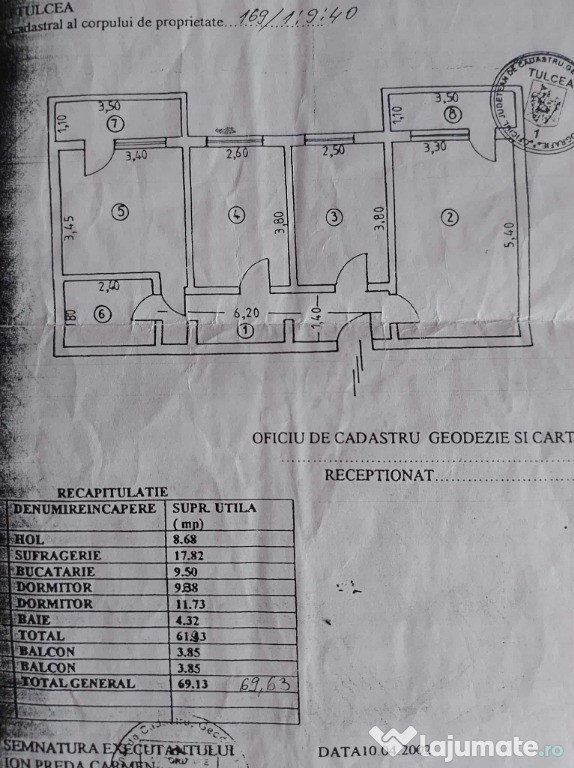 TULCEA
cadastral al corpului de proprietate....169/1;9;40
OFICIUL JUDETEAN DE CADASTRU, GE
TULCEA
1
3,50
1,10
7
3,50
1,10
8
3,40
2,60
2,50
3,30
3,45
5
4
3,80
3
3,80
2
5,40
2,40
6
80
6,20
1
1,40
OFICIU DE CADASTRU GEODEZIE SI CART
RECEPTIONAT
RECAPITULATIE
DENUMIREINCAPERE SUPR. UTILA
( mp)
HOL 8.68
SUFRAGERIE 17.82
BUCATARIE 9.50
DORMITOR 9.38
DORMITOR 11.73
BAIE 4.32
TOTAL 61.43
BALCON 3.85
BALCON 3.85
TOTAL GENERAL 69.13 69,63
SEMNATURA EXECUTANTULUI
ION PREDA CARMEN
DATA10.04.2002
lajumate.ro